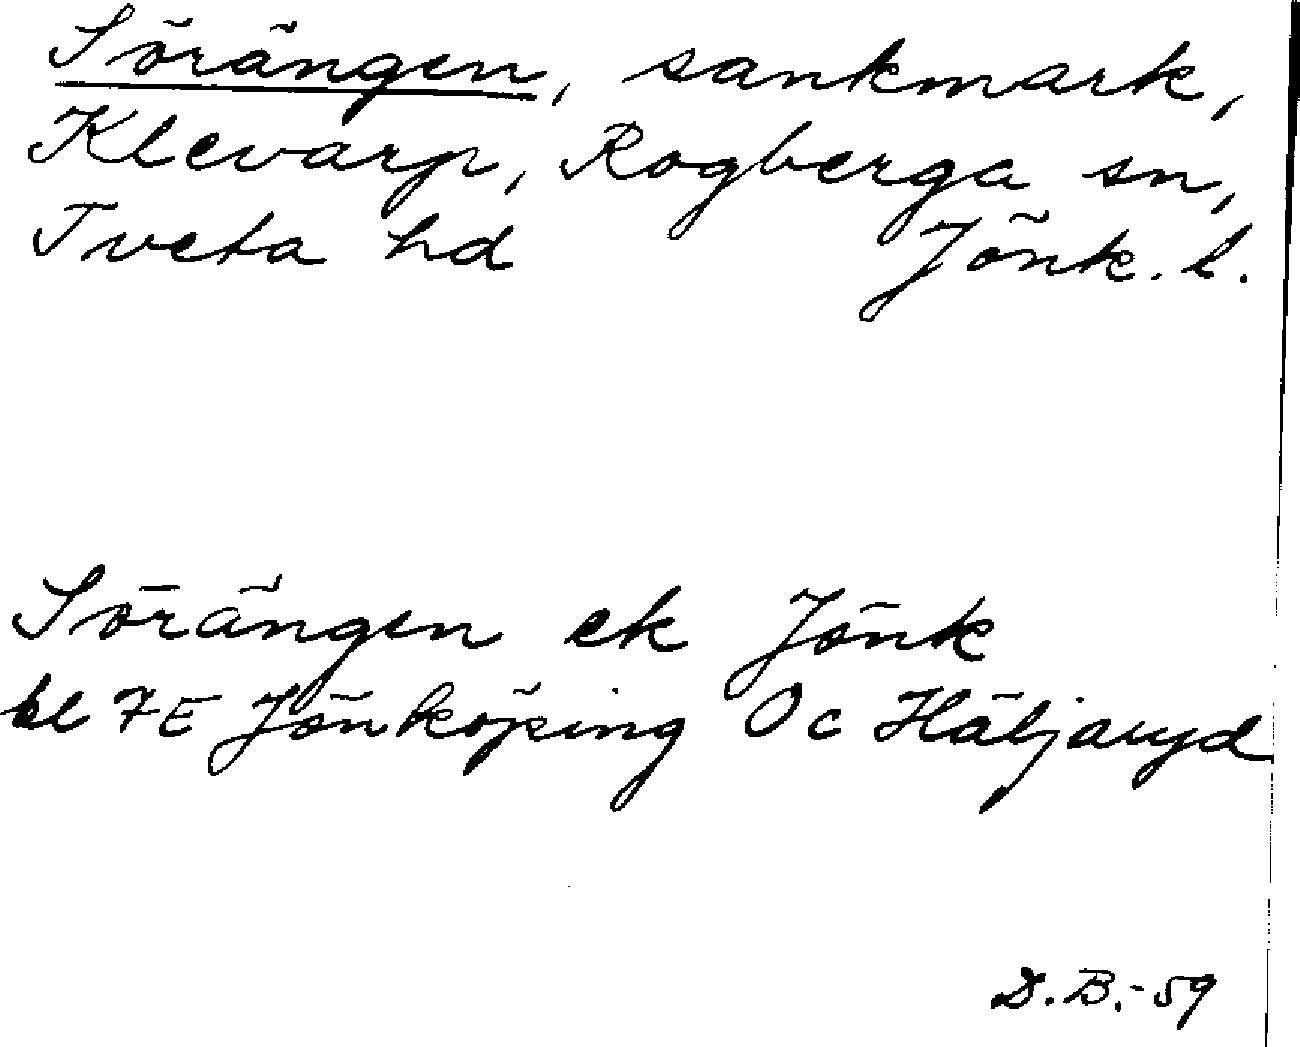 Sörängen, sankmark,
Klevarp, Rogberga sn,
Tveta hd Jönk. l.
Sörängen ek Jönk
bl 7E Jönköping 0c Häljaryd
D.B.-59